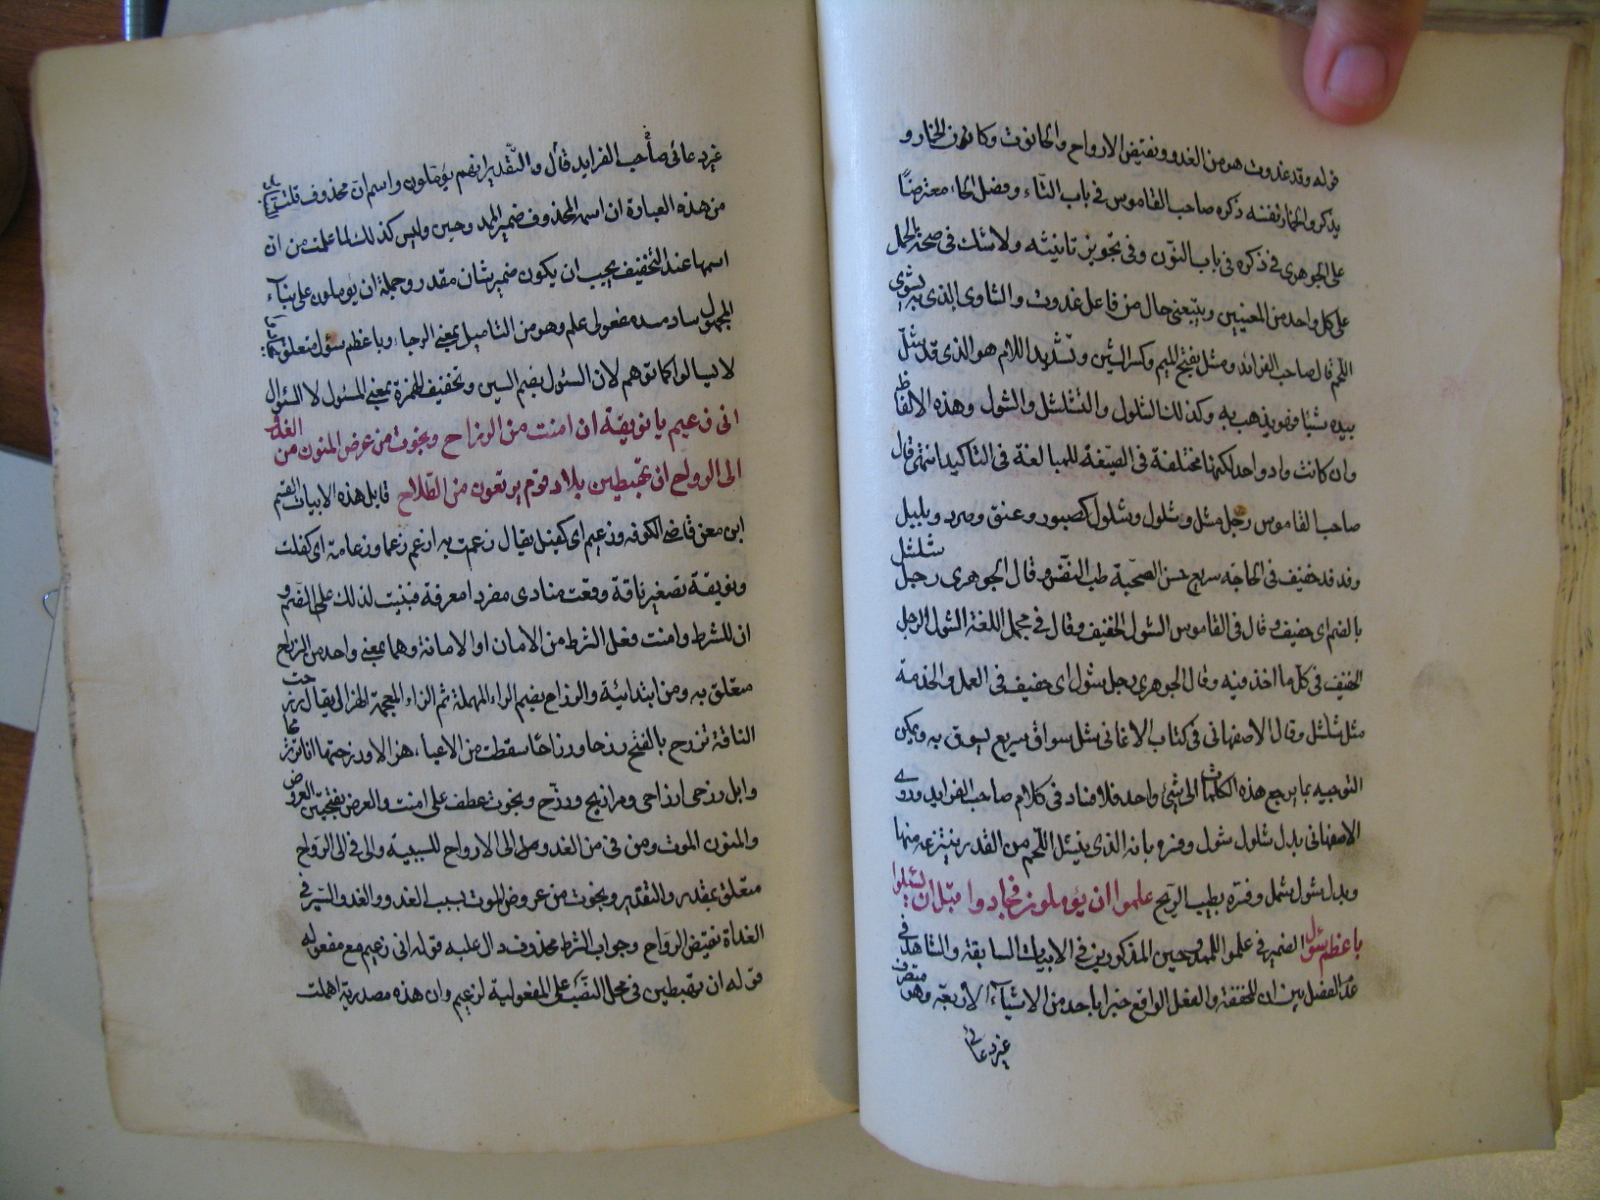 قوله وقد غدوت هو من الغدو ونقيض الارواح والحانوت وكا نون الخمار و
يذكر والخمار نفسه ذكره صاحب القاموس في باب التاء وفصل الحاء معترضا
على الجوهري في ذكره في باب النون وفي تجويز تانيثه ولا شك في صحة الحمل
على كل واحد من المعنيين ويتبعني حال من فاعل غدوت والشاوي الذي يشوي
اللحم قال صاحب الفرائد ومشل بفتح الميم وكسر الشين وتشديد اللام هو الذي قد يشل
بيده شيئا فهو يذهب به وكذلك الشلول والشلشل والشول وهذه الالفاظ
وان كانت واد واحد لكنها مختلفة في الصيغة للمبالغة في التاكيد انتهى قال
صاحب القاموس رجل مشل وشلول وشلول كصبور وعنق وصرد وبلبل
وفدفد خفيف في الحاجة سريع حسن الصحبة طيب النفس وقال الجوهري رجل شلشل
بالضم اي خفيف وقال في القاموس الشول الخفيف وقال في مجمل اللغة الشول الرجل
الخفيف في كل ما اخذ فيه وقال الجوهري رجل شول اي خفيف في العمل والخدمة
مثل شلشل وقال الاصفهاني في كتاب الاغاني مشل سواق سريع يسوق به ويمكن
التوجيه بما يرجع هذه الكلمات الى شئ واحد فلا فساد في كلام صاحب الفرايد وروى
الاصفهاني بدل شلول نشول وفسره بانه الذي ينشل اللحم من القدر ينتزعه منها
وبدل شول شمل وفسره بطيب الريح علموا ان يؤملون فجادوا قبل ان يسئلوا
باعظم سؤل الضمير في علموا للممدوحين المذكورين في الابيات السابقة والشاهد في
عدم الفصل بين ان المخففة والفعل الواقع خبرا باحد من الاشياء الاربعة وهو متصرف
غير دعائي
غير دعائي صاحب الفرايد قال والتقدير انهم يؤملون واسم ان محذوف قلت
من هذه العبارة ان اسمها المحذوف ضمير الممدوحين وليس كذلك لما علمت من ان
اسمها عند التخفيف يجب ان يكون ضمير شان مقدر وجملة ان يؤملون على بناء
المجهول ساد مسد مفعولي علم وهو من التاميل بمعنى الرجاء وباعظم سؤل متعلق بجادوا
لا يسالوا كما توهم لان السئول بضم السين وتخفيف الهمزة بمعنى المسئول لا السئوال
اني زعيم يا نويقة ان امنت من الرزاح ونجوت من عرض المنون من الغدو
الى الرواح ان تهبطين بلاد قوم يرتعون من الطلاح قايل هذه الابيات القسم
ابن معن قاضي الكوفة وزعيم اي كفيل يقال زعمت به ازعم زعما وزعامة اي كفلت
ونويقة تصغير ناقة وقعت منادى مفردا معرفة فبنيت لذلك على الضم و
ان للشرط وامنت فعل الشرط من الامان او الامانة وهما بمعنى واحد من الرزاح
متعلق به ومن ابتدائية والرزاح بضم الراء المهملة ثم الزاء المعجمة الهزال يقال رزحت
الناقة ترزح بالفتح رزوحا ورزاحا سقطت من الاعياء هزالا ورزحتها انا ترزيحا
وابل رزحى ارزاحى ومرازيح ورزح ونجوت عطف على امنت والعرض بفتحتين العروض
والمنون الموت ومن في من الغدو وصل الى الارواح للسببية والى في الى الرواح
متعلق بمقدر والتقدير ونجوت من عروض الموت بسبب الغدو والغدو السير في
الغداة نقيض الرواح وجواب الشرط محذوف دال عليه قوله اني زعيم مع مفعوله
قوله ان تهبطين في محل النصب على المفعولية لزعيم وان هذه مصدرية اهملت